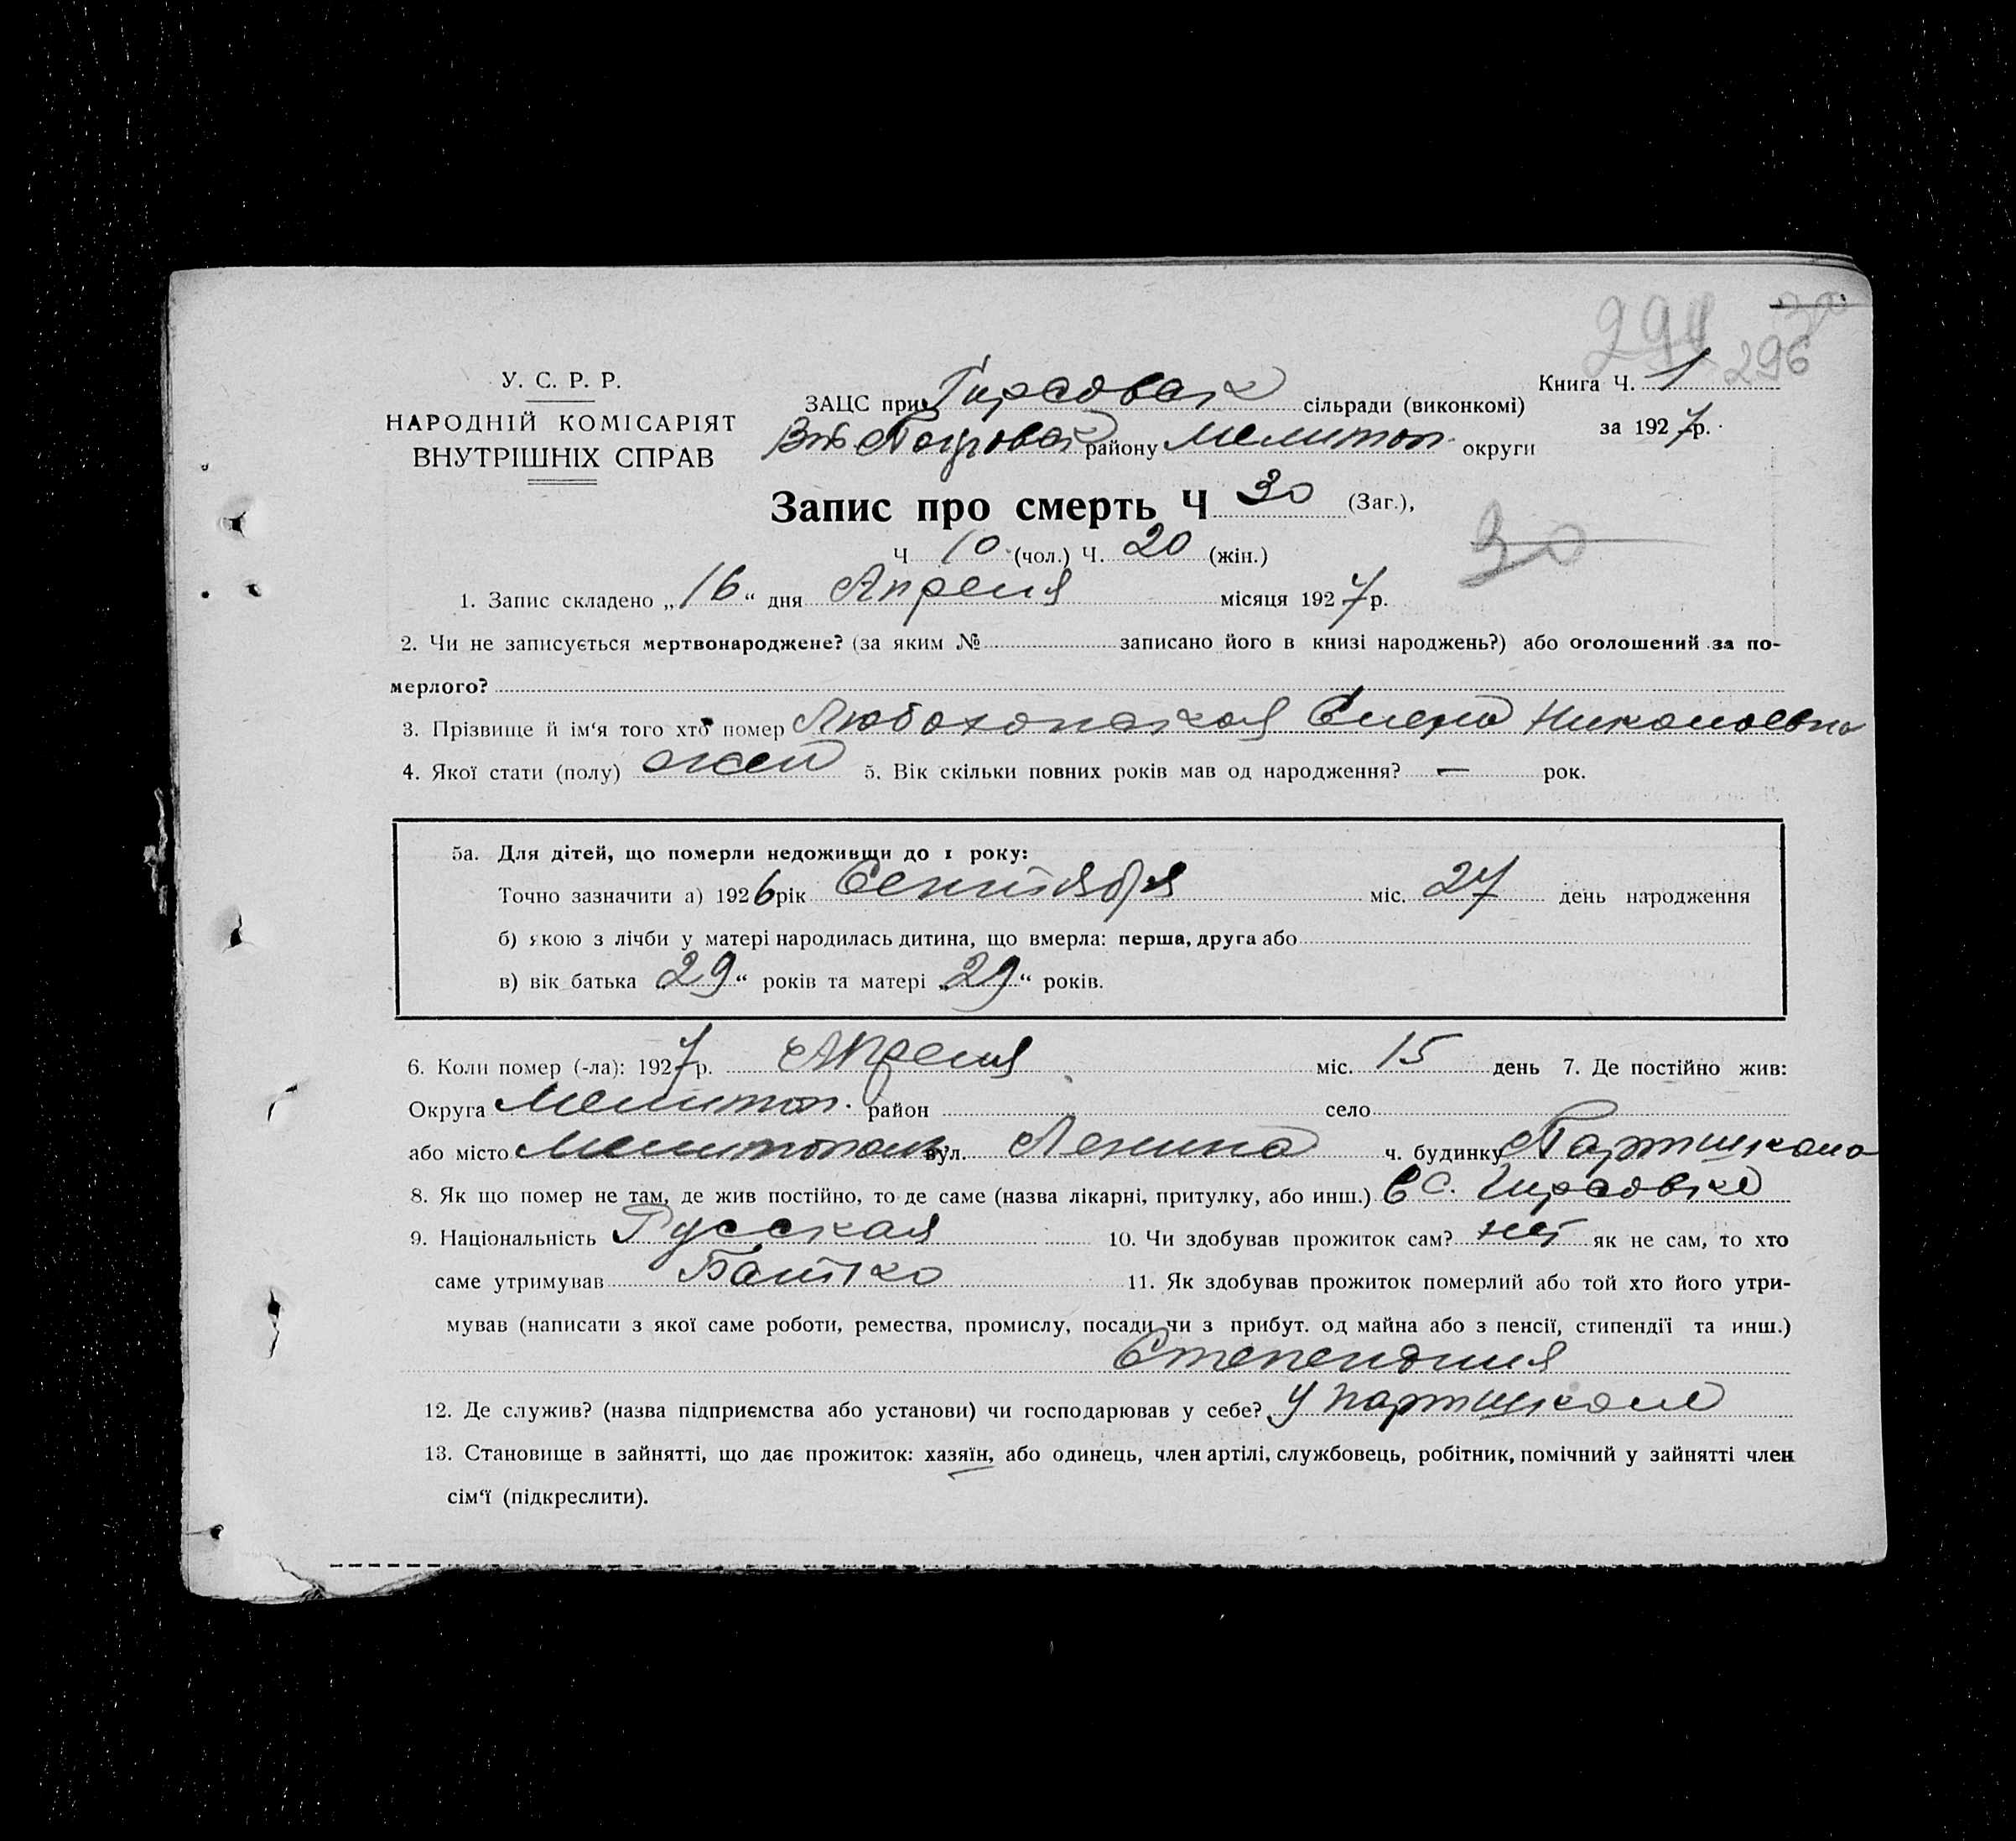 294 30
296
У. С. Р. Р.
НАРОДНІЙ КОМІСАРІЯТ
ВНУТРІШНІХ СПРАВ
ЗАЦС при Гирсовск сільради (виконкомі)
Покровск району Мелитоп. округи
Книга Ч. 1
за 1927р.
Запис про смерть Ч 30 (Заг.),
Ч 10 (чол.) Ч. 20 (жін.)
30
1. Запис складено „16“ дня Апреля місяця 1927р.
2. Чи не записується мертвонароджене? (за яким № записано його в книзі народжень?) або оголошений за по-
мерлого?
3. Прізвище й ім‘я того хто помер Николаевна
4. Якої стати (полу) жен 5. Вік скільки повних років мав од народження? — рок.
5а. Для дітей, що померли недоживши до 1 року:
Точно зазначити а) 1926 рік Сентября міс. 27 день народження
б) якою з лічби у матері народилась дитина, що вмерла: перша, друга або
в) вік батька „29“ років та матері „29“ років.
6. Коли помер (-ла): 1927р. Апреля міс. 15 день 7. Де постійно жив:
Округа Мелитоп. район село
або місто Мелитополь вул. Ленина ч. будинку Партшкола
8. Як що помер не там, де жив постійно, то де саме (назва лікарні, притулку, або инш.) в с. Гирсовке
9. Національність Русская 10. Чи здобував прожиток сам? нет як не сам, то хто
саме утримував Батько 11. Як здобував прожиток померлий або той хто його утри-
мував (написати з якої саме роботи, ремества, промислу, посади чи з прибут. од майна або з пенсії, стипендії та инш.)
Степендия
12. Де служив? (назва підприємства або установи) чи господарював у себе? у партшколе
13. Становище в зайнятті, що дає прожиток: хазяїн, або одинець, член артілі, службовець, робітник, помічний у зайнятті член
сім‘ї (підкреслити).